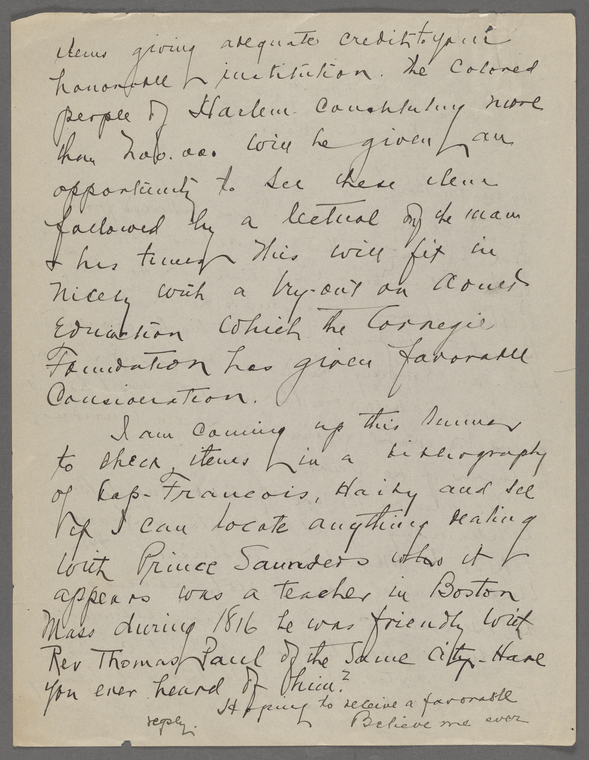 items giving adequate credit to your
honorable institution. The Colored
people of Harlem constituting more
than 200.000 will be given an
opportunity to see these items
followed by a lecture of the man
& his times This will fit in
nicely with a try-out on Adult
Education which the Carnegie
Foundation has given favorable
Consideration.
I am coming up this Summer
to check items in a bibliography
of Cap-Francois, Haity and see
if I can locate anything dealing
with Prince Saunders who it
appears was a teacher in Boston
Mass during 1816 he was friendly with
Rev Thomas Paul of the Same City - Have
you ever heard of him?
Hoping to receive a favorable
reply. Believe me ever